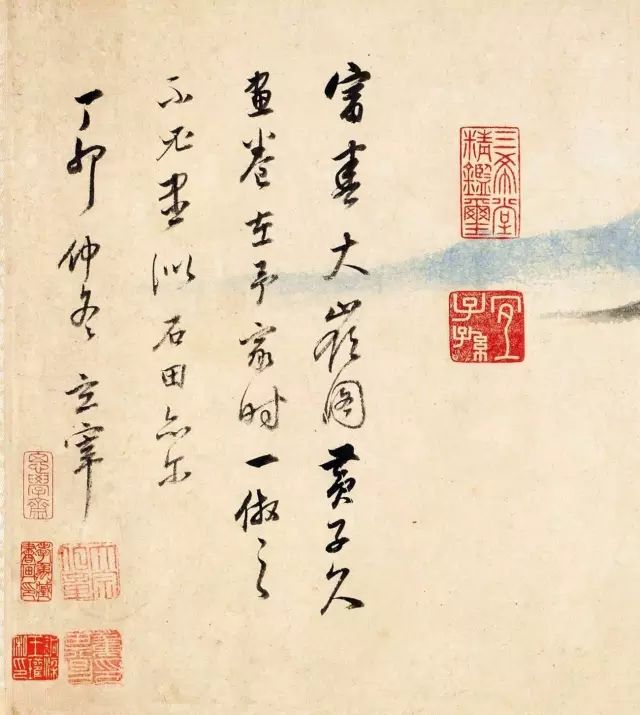 三希堂精鑑璽
宜子孫
富春大嶺圖黃子久
畫卷在予家時一倣之
不能盡似石田亦尔
丁卯仲冬玄宰